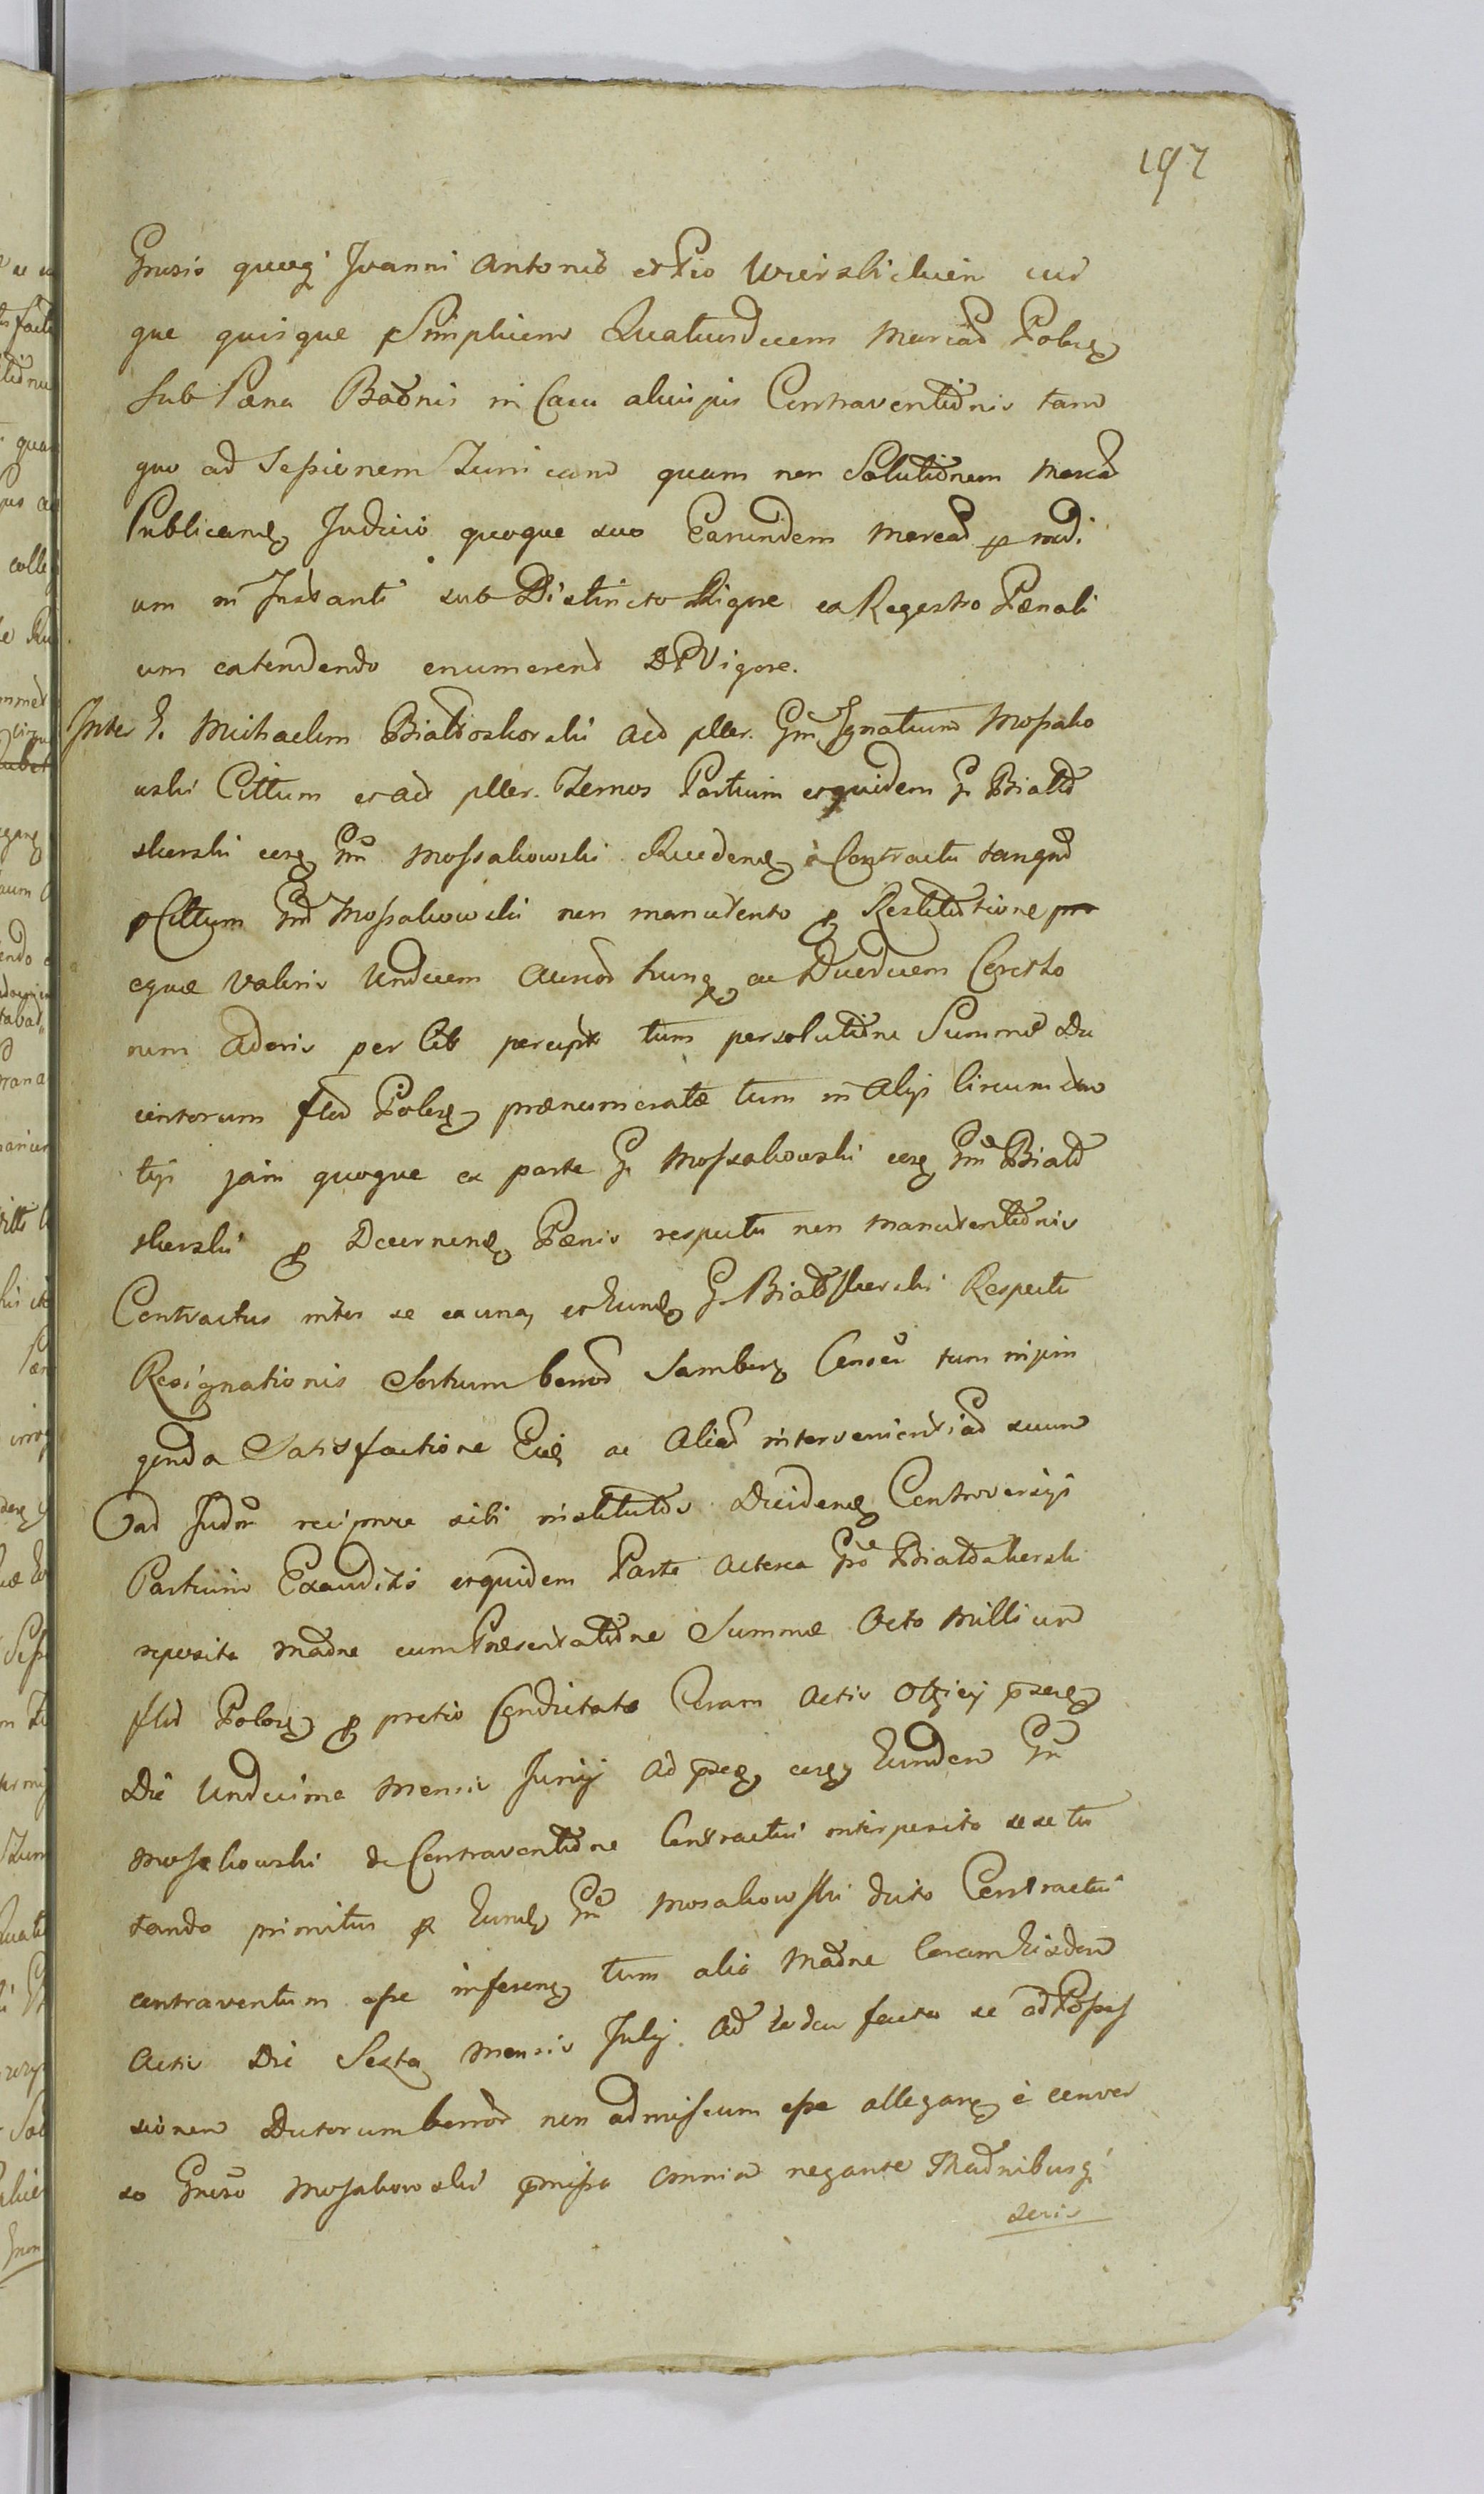 197
Gnrosis quoq Joanni Antonio et Pio Wierzbicluen cui
que quisque Simplicem Quatuordecem Marcar Policq
sub Pæna Banōnis in Casu alicujus Contraventiōnis tam
quo ad Sessionem Turri eand quam non Solutiōnem Marcar
Publicandq Judicio quoque suo Earundem Marcar p medi
um in Instanti sub Districto Rigore ex Regestro Pænali
um extendendo enumerend DP Vigore.
Inter G. Michaelem Białoskorski Act pller. Gm Ignatium Mossako
wski Cittum et ad pller. Temos Partium etquidem G. Biało
skorski erg Gm Mossakowski Recedenq à Contractu tanqm
p Cittum Gm Mossakowski non manutento p Restitutione
equæ valoris Undecem Aureor hung ac Duodecem Coreto
rum Avenis per Cit percept tum persolutiōne Summæ Du
centorum flor Policq prænumeratæ tum in Alijs Circumstan
tijs jam quoque ex parte G. Mossakowski erg Gm Biało
skorski p Decernendq Pænis respectu non Manutentiōnis
Contractus inter se ex una, et Eundq G. Białoskorski Respectu
Resignationis Sortium bonor Samborz Conser tum injun
genda Satisfactione Eidq ac Aliar intervenientiar suum
ad Judm reciprore sibi institutōr Decidendq Controversijs
Partium Exauditis etquidem Parte Actorea Gro Białoskorski
reposita Madne cum Præsentatiōne Summæ Octo Millium
flor Policq p pretio Condictato Coram Actis Offiej pserq
Die Undecima Mensis Junij Ad pserq erg Eundem Gm
Mosakowski de Contraventiōne Contractui interposito sese tu
tando primitus p Eundq Gm Mosakowski dicto Contractui
contraventum esse inferenq tum alio Madne Coram Eisdem
Actis Die Sexta Mensis Julij. Ad eadem facta se ad Posses
sionem Dictorum bonor non admissum esse allegarq è conver
so Gnroso Mosakowski pmissa Omnia negante Madnibusq
seris